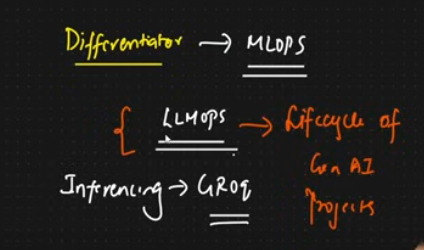 Differentiator → MLOPS
{ LLMOPS → Lifecycle of
Gen AI
Projects
Inferencing → GROq